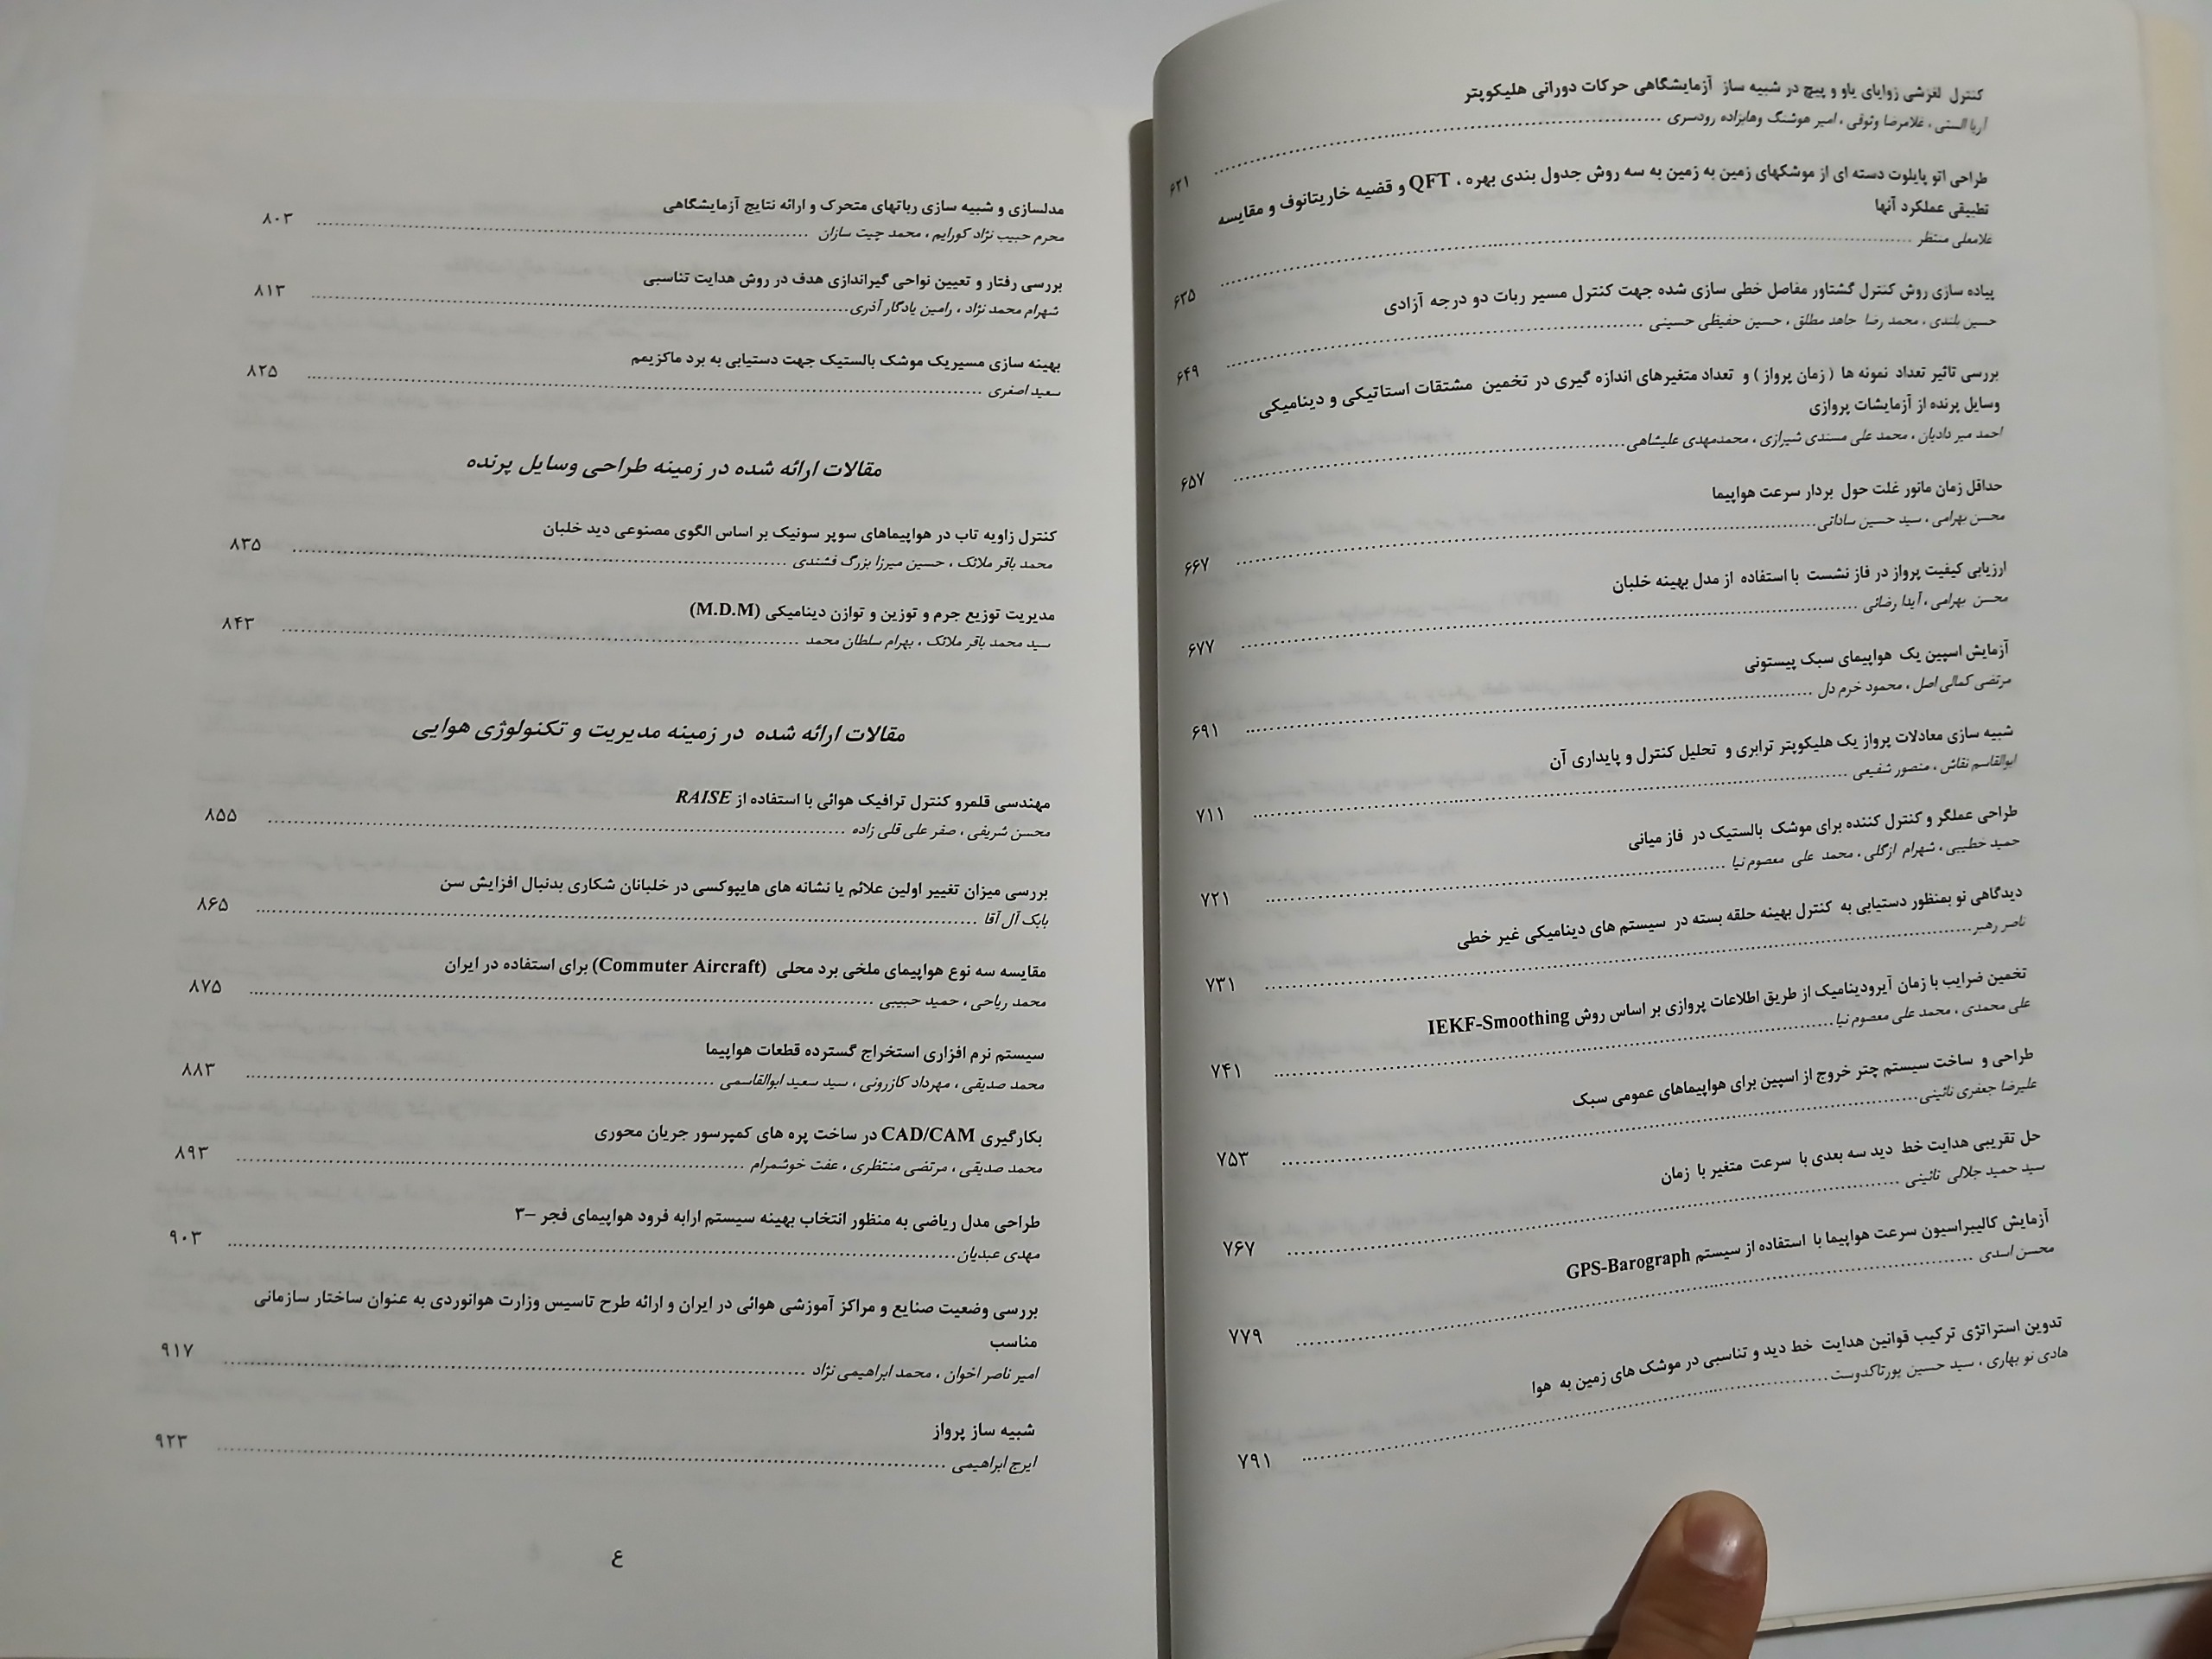 کنترل لغزشی زوایای یاو و پیچ در شبیه ساز آزمایشگاهی حرکات دورانی هلیکوپتر
آریا الستی ، غلامرضا وثوقی ، امیر هوشنگ وهابزاده رودسری .......... ۶۲۱
طراحی اتو پایلوت دسته ای از موشکهای زمین به زمین به سه روش جدول بندی بهره ، QFT و قضیه خاریتانوف و مقایسه
تطبیقی عملکرد آنها
غلامعلی منتظر .......... ۶۳۵
پیاده سازی روش کنترل گشتاور مفاصل خطی سازی شده جهت کنترل مسیر ربات دو درجه آزادی
حسین بلندی ، محمد رضا جاهد مطلق ، حسین حفیظی حسینی .......... ۶۴۹
بررسی تاثیر تعداد نمونه ها ( زمان پرواز ) و تعداد متغیرهای اندازه گیری در تخمین مشتقات استاتیکی و دینامیکی
وسایل پرنده از آزمایشات پروازی
احمد میر دادیان ، محمد علی مسندی شیرازی ، محمدمهدی علیشاهی .......... ۶۵۷
حداقل زمان مانور غلت حول بردار سرعت هواپیما
محسن بهرامی ، سید حسین ساداتی .......... ۶۶۷
ارزیابی کیفیت پرواز در فاز نشست با استفاده از مدل بهینه خلبان
محسن بهرامی ، آیدا رضائی .......... ۶۷۷
آزمایش اسپین یک هواپیمای سبک پیستونی
مرتضی کمالی اصل ، محمود خرم دل .......... ۶۹۱
شبیه سازی معادلات پرواز یک هلیکوپتر ترابری و تحلیل کنترل و پایداری آن
ابوالقاسم نقاش ، منصور شفیعی .......... ۷۱۱
طراحی عملگر و کنترل کننده برای موشک بالستیک در فاز میانی
حمید خطیبی ، شهرام ازگلی ، محمد علی معصوم نیا .......... ۷۲۱
دیدگاهی نو بمنظور دستیابی به کنترل بهینه حلقه بسته در سیستم های دینامیکی غیر خطی
ناصر رهبر .......... ۷۳۱
تخمین ضرایب با زمان آیرودینامیک از طریق اطلاعات پروازی بر اساس روش IEKF-Smoothing
علی محمدی ، محمد علی معصوم نیا .......... ۷۴۱
طراحی و ساخت سیستم چتر خروج از اسپین برای هواپیماهای عمومی سبک
علیرضا جعفری نائینی .......... ۷۵۳
حل تقریبی هدایت خط دید سه بعدی با سرعت متغیر با زمان
سید حمید جلالی نائینی .......... ۷۶۷
آزمایش کالیبراسیون سرعت هواپیما با استفاده از سیستم GPS-Barograph
محسن اسدی .......... ۷۷۹
تدوین استراتژی ترکیب قوانین هدایت خط دید و تناسبی در موشک های زمین به هوا
هادی نو بهاری ، سید حسین پورتاکدوست .......... ۷۹۱
مدلسازی و شبیه سازی رباتهای متحرک و ارائه نتایج آزمایشگاهی
محرم حبیب نژاد کورایم ، محمد چیت سازان .......... ۸۰۳
بررسی رفتار و تعیین نواحی گیراندازی هدف در روش هدایت تناسبی
شهرام محمد نژاد ، رامین یادگار آذری .......... ۸۱۳
بهینه سازی مسیریک موشک بالستیک جهت دستیابی به برد ماکزیمم
سعید اصغری .......... ۸۲۵
مقالات ارائه شده در زمینه طراحی وسایل پرنده
کنترل زاویه تاب در هواپیماهای سوپر سونیک بر اساس الگوی مصنوعی دید خلبان
محمد باقر ملائک ، حسین میرزا بزرگ فشندی .......... ۸۳۵
مدیریت توزیع جرم و توزین و توازن دینامیکی (M.D.M)
سید محمد باقر ملائک ، بهرام سلطان محمد .......... ۸۴۳
مقالات ارائه شده در زمینه مدیریت و تکنولوژی هوایی
مهندسی قلمرو کنترل ترافیک هوائی با استفاده از RAISE
محسن شریفی ، صفر علی قلی زاده .......... ۸۵۵
بررسی میزان تغییر اولین علائم یا نشانه های هایپوکسی در خلبانان شکاری بدنبال افزایش سن
بابک آل آقا .......... ۸۶۵
مقایسه سه نوع هواپیمای ملخی برد محلی (Commuter Aircraft) برای استفاده در ایران
محمد ریاحی ، حمید حبیبی .......... ۸۷۵
سیستم نرم افزاری استخراج گسترده قطعات هواپیما
محمد صدیقی ، مهرداد کازرونی ، سید سعید ابوالقاسمی .......... ۸۸۳
بکارگیری CAD/CAM در ساخت پره های کمپرسور جریان محوری
محمد صدیقی ، مرتضی منتظری ، عفت خوشمرام .......... ۸۹۳
طراحی مدل ریاضی به منظور انتخاب بهینه سیستم ارابه فرود هواپیمای فجر –۳
مهدی عبدیان .......... ۹۰۳
بررسی وضعیت صنایع و مراکز آموزشی هوائی در ایران و ارائه طرح تاسیس وزارت هوانوردی به عنوان ساختار سازمانی
مناسب
امیر ناصر اخوان ، محمد ابراهیمی نژاد .......... ۹۱۷
شبیه ساز پرواز
ایرج ابراهیمی .......... ۹۲۳
ع